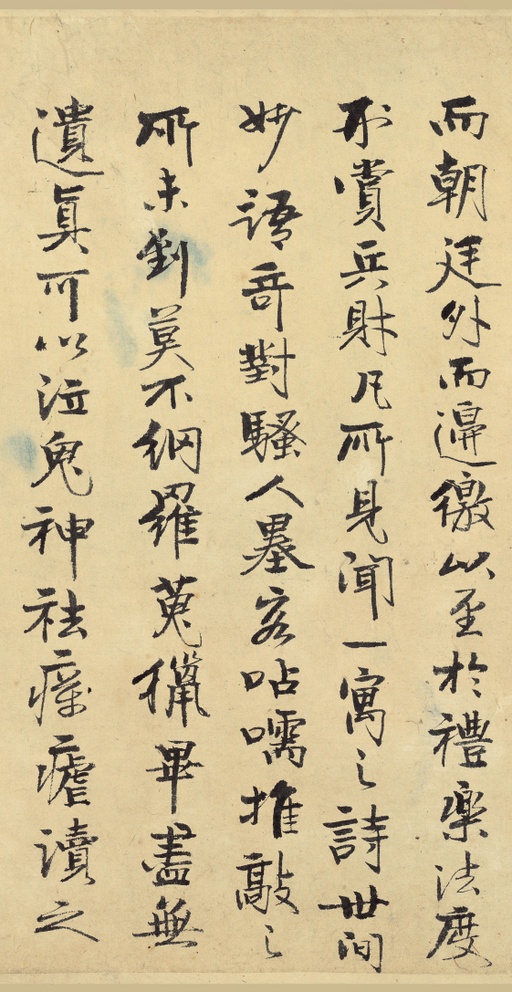 而朝廷外而邊徼以至於禮樂法度
刑賞兵財凡所見聞一寓之詩世間
妙語奇對騷人墨客呫嚅推敲之
所未到莫不網羅蒐獵畢盡無
遺真可以泣鬼神祛瘴瘧讀之